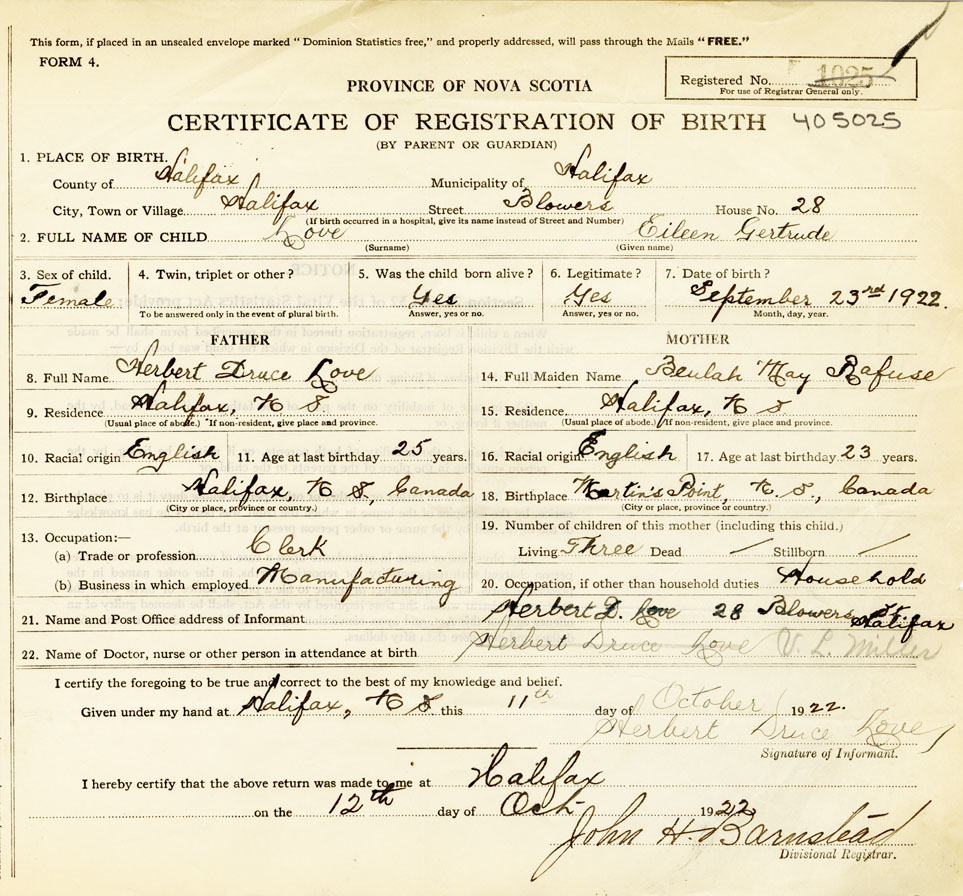 This form, if placed in an unsealed envelope marked "Dominion Statistics free," and properly addressed, will pass through the Mails "FREE."
FORM 4.
PROVINCE OF NOVA SCOTIA
Registered No. 1025
For use of Registrar General only.
CERTIFICATE OF REGISTRATION OF BIRTH 405025
(BY PARENT OR GUARDIAN)
1. PLACE OF BIRTH.
County of Halifax Municipality of Halifax
City, Town or Village Halifax Street Blowers House No. 28
(If birth occurred in a hospital, give its name instead of Street and Number)
2. FULL NAME OF CHILD Love Eileen Gertrude
(Surname) (Given name)
3. Sex of child. 4. Twin, triplet or other? 5. Was the child born alive? 6. Legitimate? 7. Date of birth?
Female Yes Yes September 23rd 1922.
To be answered only in the event of plural birth. Answer, yes or no. Answer, yes or no. Month, day, year.
FATHER MOTHER
8. Full Name Herbert Druce Love 14. Full Maiden Name Beulah May Rafuse
9. Residence Halifax, N S 15. Residence Halifax, N S
(Usual place of abode.) If non-resident, give place and province. (Usual place of abode.) If non-resident, give place and province.
10. Racial origin English 11. Age at last birthday 25 years. 16. Racial origin English 17. Age at last birthday 23 years.
12. Birthplace Halifax, N S, Canada 18. Birthplace Martin's Point, N. S., Canada
(City or place, province or country.) (City or place, province or country.)
13. Occupation:— 19. Number of children of this mother (including this child.)
(a) Trade or profession Clerk Living Three Dead / Stillborn /
(b) Business in which employed Manufacturing 20. Occupation, if other than household duties Household
21. Name and Post Office address of Informant Herbert D. Love 28 Blowers St Halifax
22. Name of Doctor, nurse or other person in attendance at birth Herbert Druce Love V. L. Miller
I certify the foregoing to be true and correct to the best of my knowledge and belief.
Given under my hand at Halifax, N S this 11th day of October 1922.
Herbert Druce Love
Signature of Informant.
I hereby certify that the above return was made to me at Halifax
on the 12th day of Oct 1922
John H. Barnstead
Divisional Registrar.